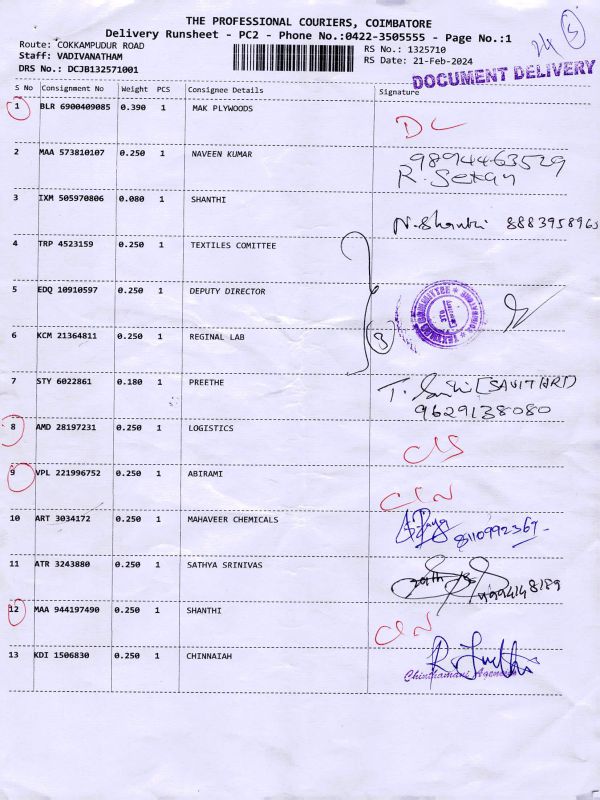 THE PROFESSIONAL COURIERS, COIMBATORE
Delivery Runsheet - PC2 - Phone No.:0422-3505555 - Page No.:1
Route: COKKAMPUDUR ROAD
Staff: VADIVANATHAM
DRS No.: DCJB132571001
RS No.: 1325710
RS Date: 21-Feb-2024
DOCUMENT DELIVERY
S No Consignment No Weight PCS Consignee Details Signature
1 BLR 6900409085 0.390 1 MAK PLYWOODS
DC
2 MAA 573810107 0.250 1 NAVEEN KUMAR
9894463529
R. Sekar
3 IXM 505970806 0.080 1 SHANTHI
N. Shanthi 8883958963
4 TRP 4523159 0.250 1 TEXTILES COMITTEE
5 EDQ 10910597 0.250 1 DEPUTY DIRECTOR
6 KCM 21364811 0.250 1 REGINAL LAB
3
7 STY 6022861 0.180 1 PREETHE
(SAVITHRI)
9629138080
8 AMD 28197231 0.250 1 LOGISTICS
9 VPL 221996752 0.250 1 ABIRAMI
10 ART 3034172 0.250 1 MAHAVEER CHEMICALS
8110992367
11 ATR 3243880 0.250 1 SATHYA SRINIVAS
9994148189
12 MAA 944197490 0.250 1 SHANTHI
13 KDI 1506830 0.250 1 CHINNAIAH
Chinthamani Agencies